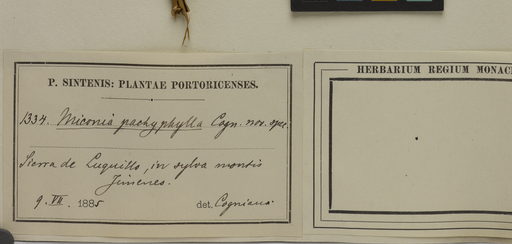 P. SINTENIS: PLANTAE PORTORICENSES.
1334. Miconia pachyphylla Cogn. nov. spec.
Sierra de Luquillo, in sylva montis
Jimenes.
9. VII. 1885 det. Cogniaux.
HERBARIUM REGIUM MONAC